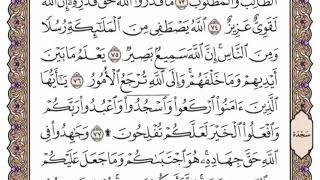 الطَّالِبُ وَالْمَطْلُوبُ ٧٣ مَا قَدَرُوا اللَّهَ حَقَّ قَدْرِهِ إِنَّ اللَّهَ
لَقَوِيٌّ عَزِيزٌ ٧٤ اللَّهُ يَصْطَفِي مِنَ الْمَلَائِكَةِ رُسُلًا
وَمِنَ النَّاسِ إِنَّ اللَّهَ سَمِيعٌ بَصِيرٌ ٧٥ يَعْلَمُ مَا بَيْنَ
أَيْدِيهِمْ وَمَا خَلْفَهُمْ وَإِلَى اللَّهِ تُرْجَعُ الْأُمُورُ ٧٦ يَا أَيُّهَا
الَّذِينَ ءَامَنُوا ارْكَعُوا وَاسْجُدُوا وَاعْبُدُوا رَبَّكُمْ
وَافْعَلُوا الْخَيْرَ لَعَلَّكُمْ تُفْلِحُونَ ۩ ٧٧ وَجَاهِدُوا فِي
سَجْدَة
اللَّهِ حَقَّ جِهَادِهِ هُوَ اجْتَبَاكُمْ وَمَا جَعَلَ عَلَيْكُمْ